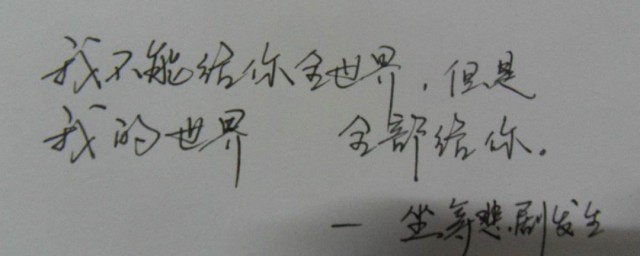 我不能给你全世界，但是
我的世界 全部给你。
— 坐等悲剧发生